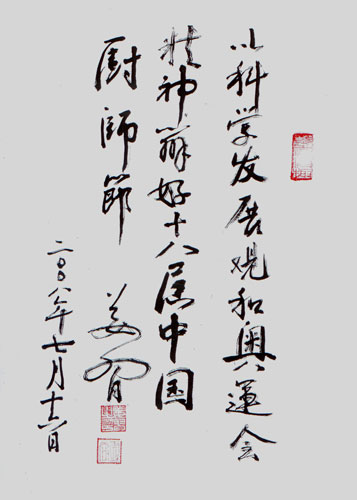 以科学发展观和奥運会
精神辦好十八届中国
厨師節
姜習
二〇〇八年七月十六日